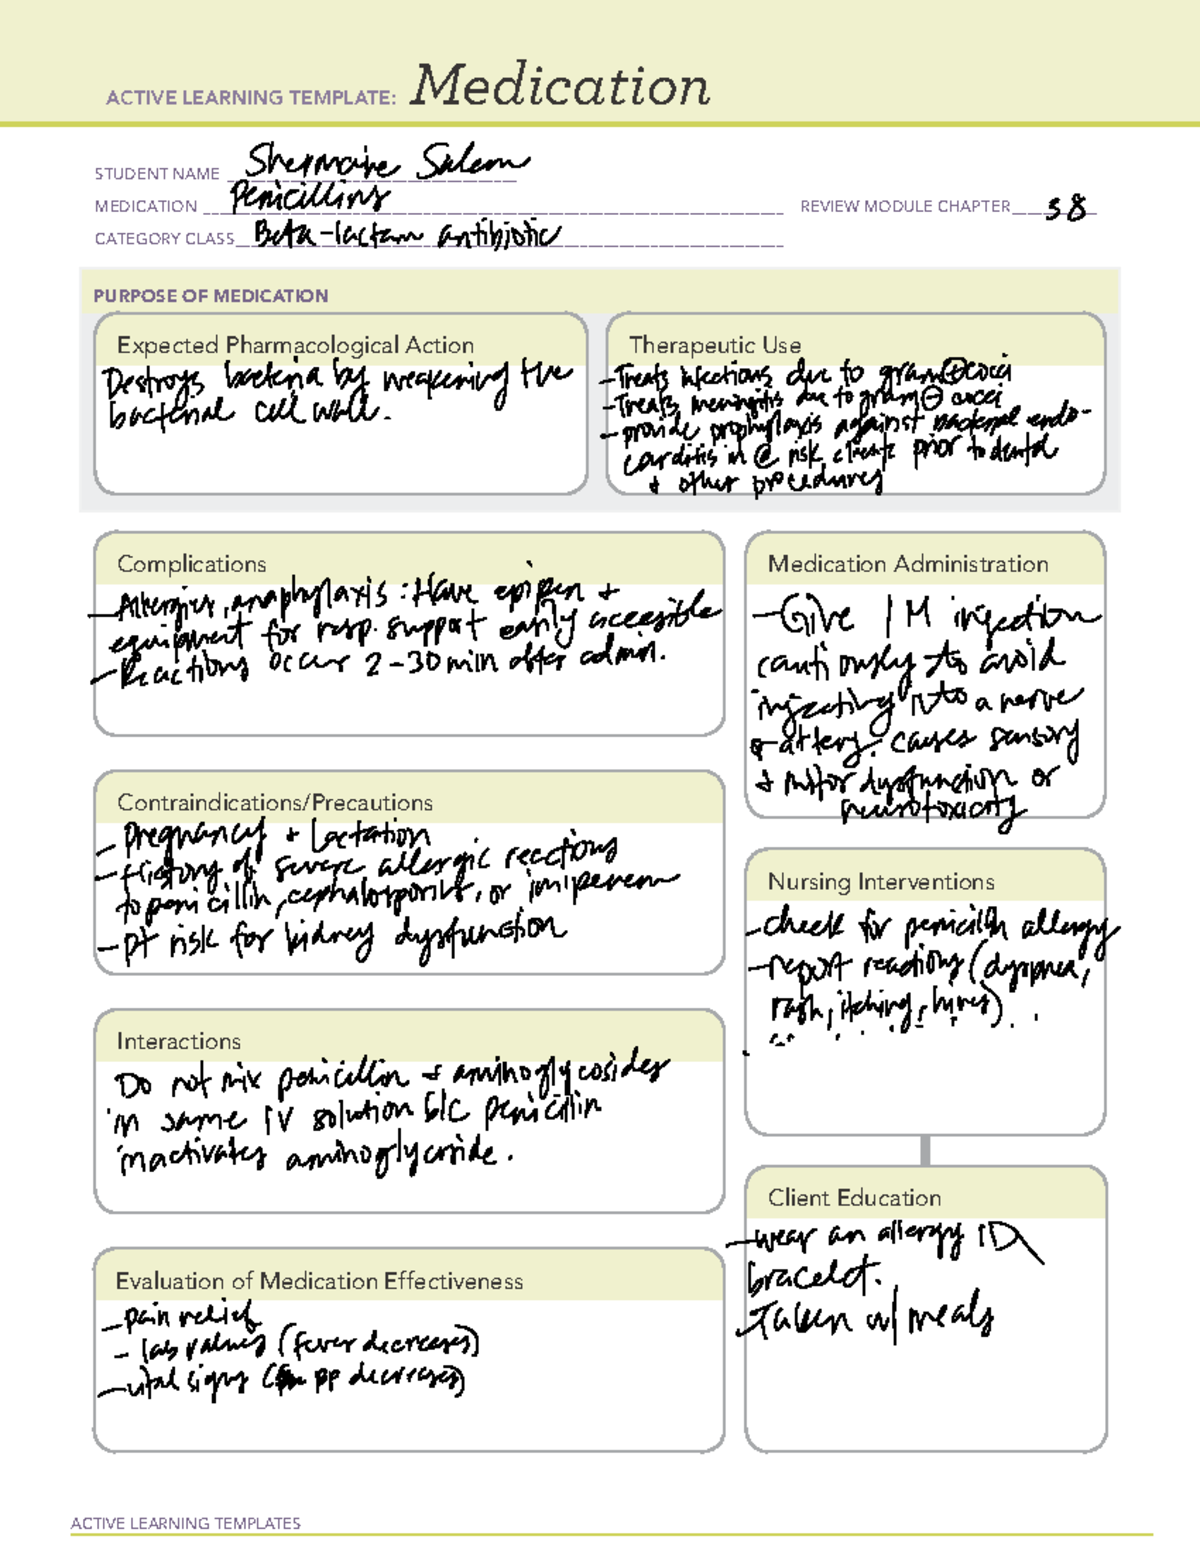 ACTIVE LEARNING TEMPLATE: Medication
STUDENT NAME Shermaine Salem
MEDICATION Penicillins
REVIEW MODULE CHAPTER 38
CATEGORY CLASS Beta-lactam antibiotic
PURPOSE OF MEDICATION
Expected Pharmacological Action
Destroys bacteria by weakening the
bacterial cell wall.
Therapeutic Use
-Treats infections due to gram ⊕ cocci
-Treats meningitis due to gram ⊖ cocci
-provide prophylaxis against bacterial endo-
carditis in @ risk clients prior to dental
+ other procedures
Complications
-Allergies, anaphylaxis: Have epipen +
equipment for resp. support easily accesible
-Reactions occur 2-30 min after admin.
Contraindications/Precautions
- Pregnancy + Lactation
- History of severe allergic reactions
to penicillin, cephalosporins, or imipenem
- PT risk for kidney dysfunction
Interactions
Do not mix penicillin + aminoglycosides
in same IV solution b/c penicillin
inactivates aminoglycoside.
Evaluation of Medication Effectiveness
-pain relief
- lab values (fever decreases)
-vital signs ( pp decreases)
Medication Administration
-Give IM injection
cautiously to avoid
injecting into a nerve
artery. causes sensory
+ motor dysfunction or
neurotoxicity
Nursing Interventions
-check for penicillin allergy
-report reactions (dyspnea,
rash, itching, hives)
Client Education
-wear an allergy ID
bracelet.
-Taken w/ meals
ACTIVE LEARNING TEMPLATES